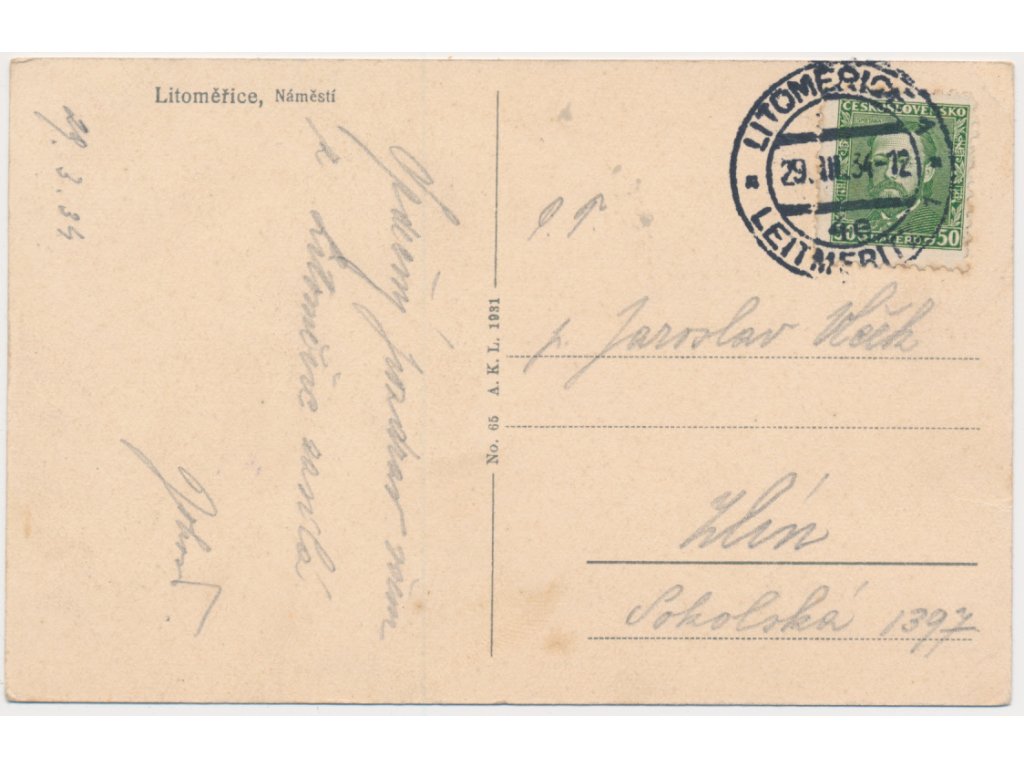 Litoměřice, Náměstí
29. 3. 34
pozdrav
z Litoměřic zasílá
No. 65 A. K. L. 1931
LITOMĚŘICE 1
29.III.34-12
LEITMERITZ 1
ČESKOSLOVENSKO
50
P. T.
p. Jaroslav Vlček
Zlín
Sokolská 1397